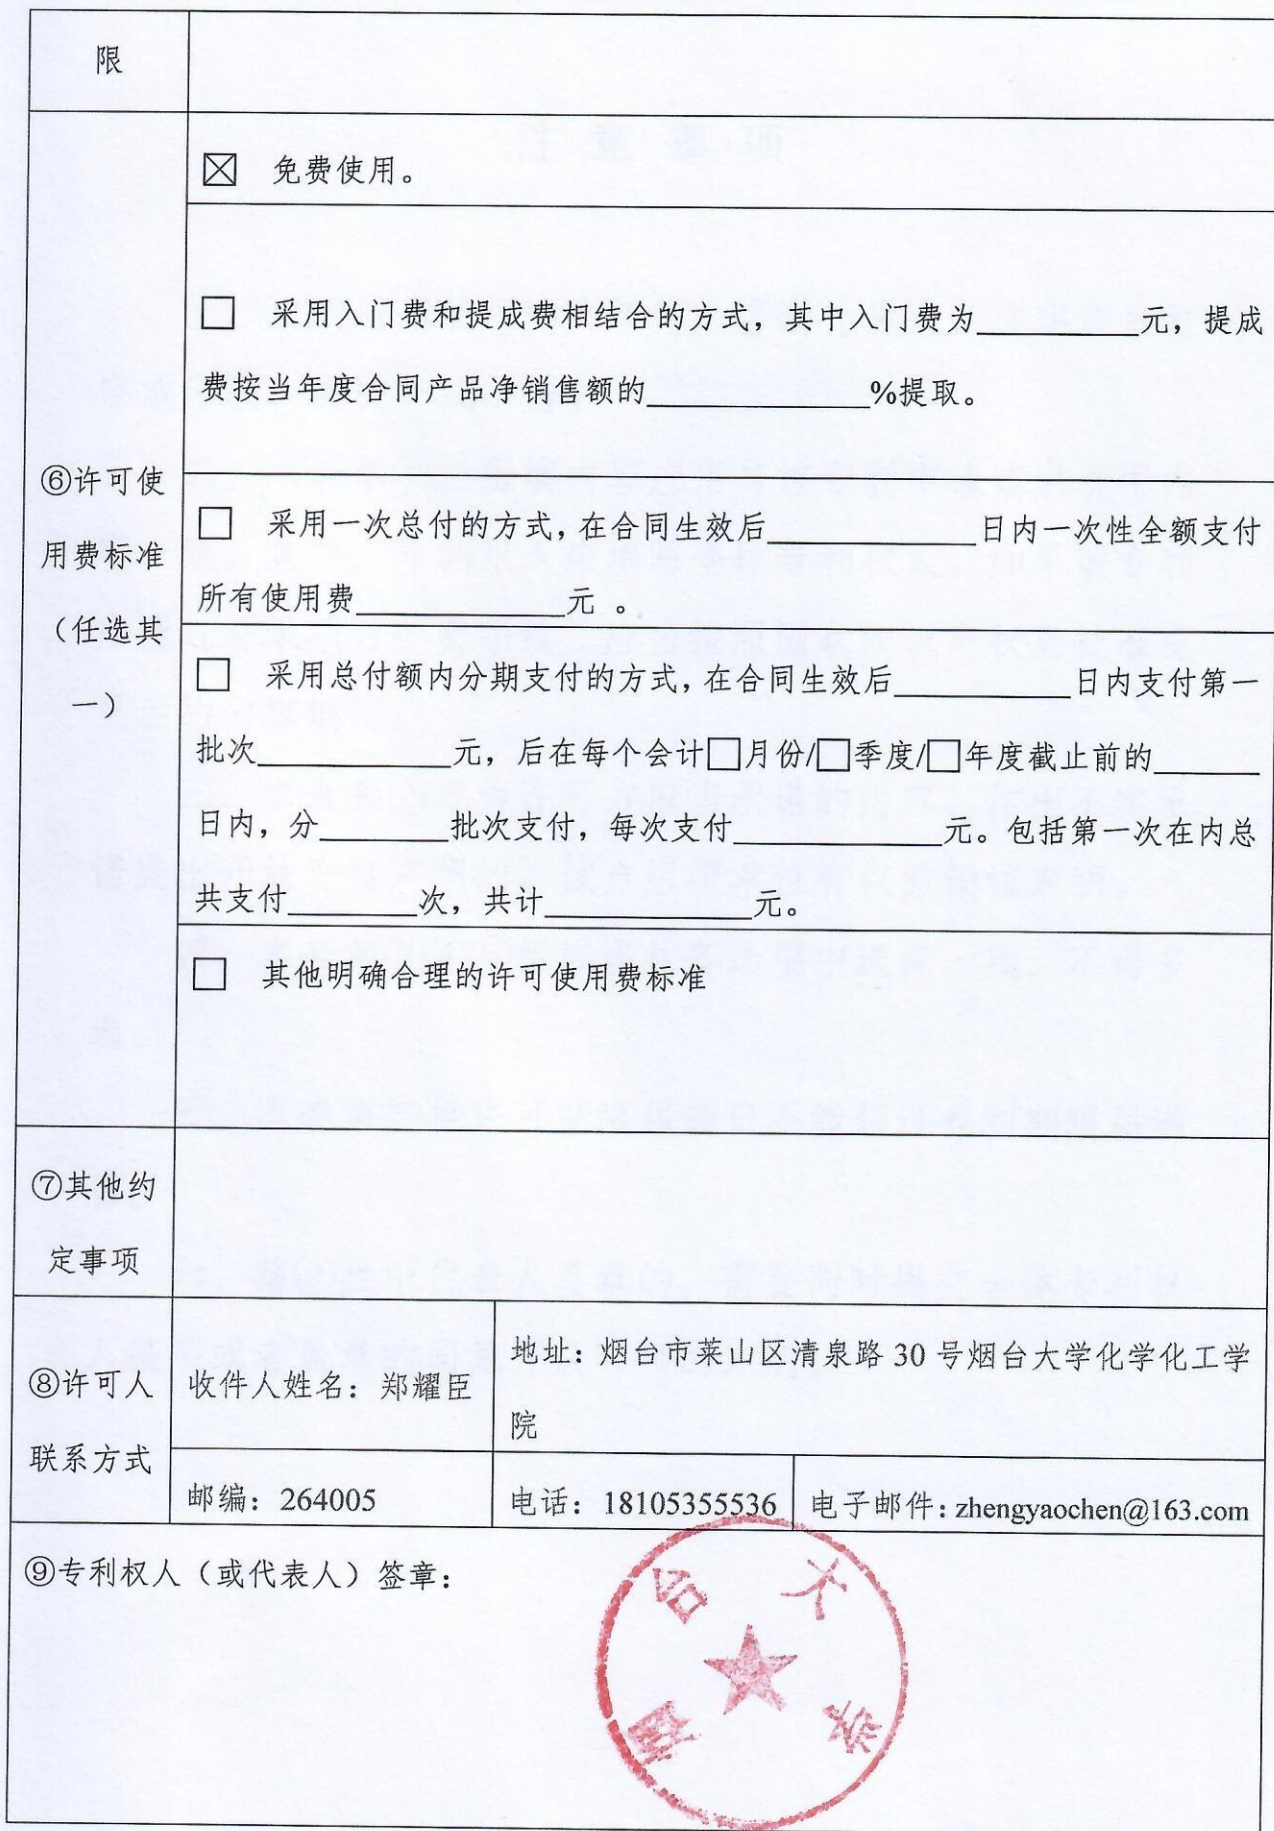 限
☒ 免费使用。
□ 采用入门费和提成费相结合的方式，其中入门费为__________元，提成
费按当年度合同产品净销售额的______________%提取。
⑥许可使
用费标准
（任选其
一）
□ 采用一次总付的方式，在合同生效后_____________日内一次性全额支付
所有使用费_____________元 。
□ 采用总付额内分期支付的方式，在合同生效后___________日内支付第一
批次____________元，后在每个会计□月份/□季度/□年度截止前的_______
日内，分________批次支付，每次支付_____________元。包括第一次在内总
共支付________次，共计_____________元。
□ 其他明确合理的许可使用费标准
⑦其他约
定事项
⑧许可人
联系方式
收件人姓名：郑耀臣
地址：烟台市莱山区清泉路 30 号烟台大学化学化工学
院
邮编：264005
电话：18105355536
电子邮件：zhengyaochen@163.com
⑨专利权人（或代表人）签章：
烟台大学